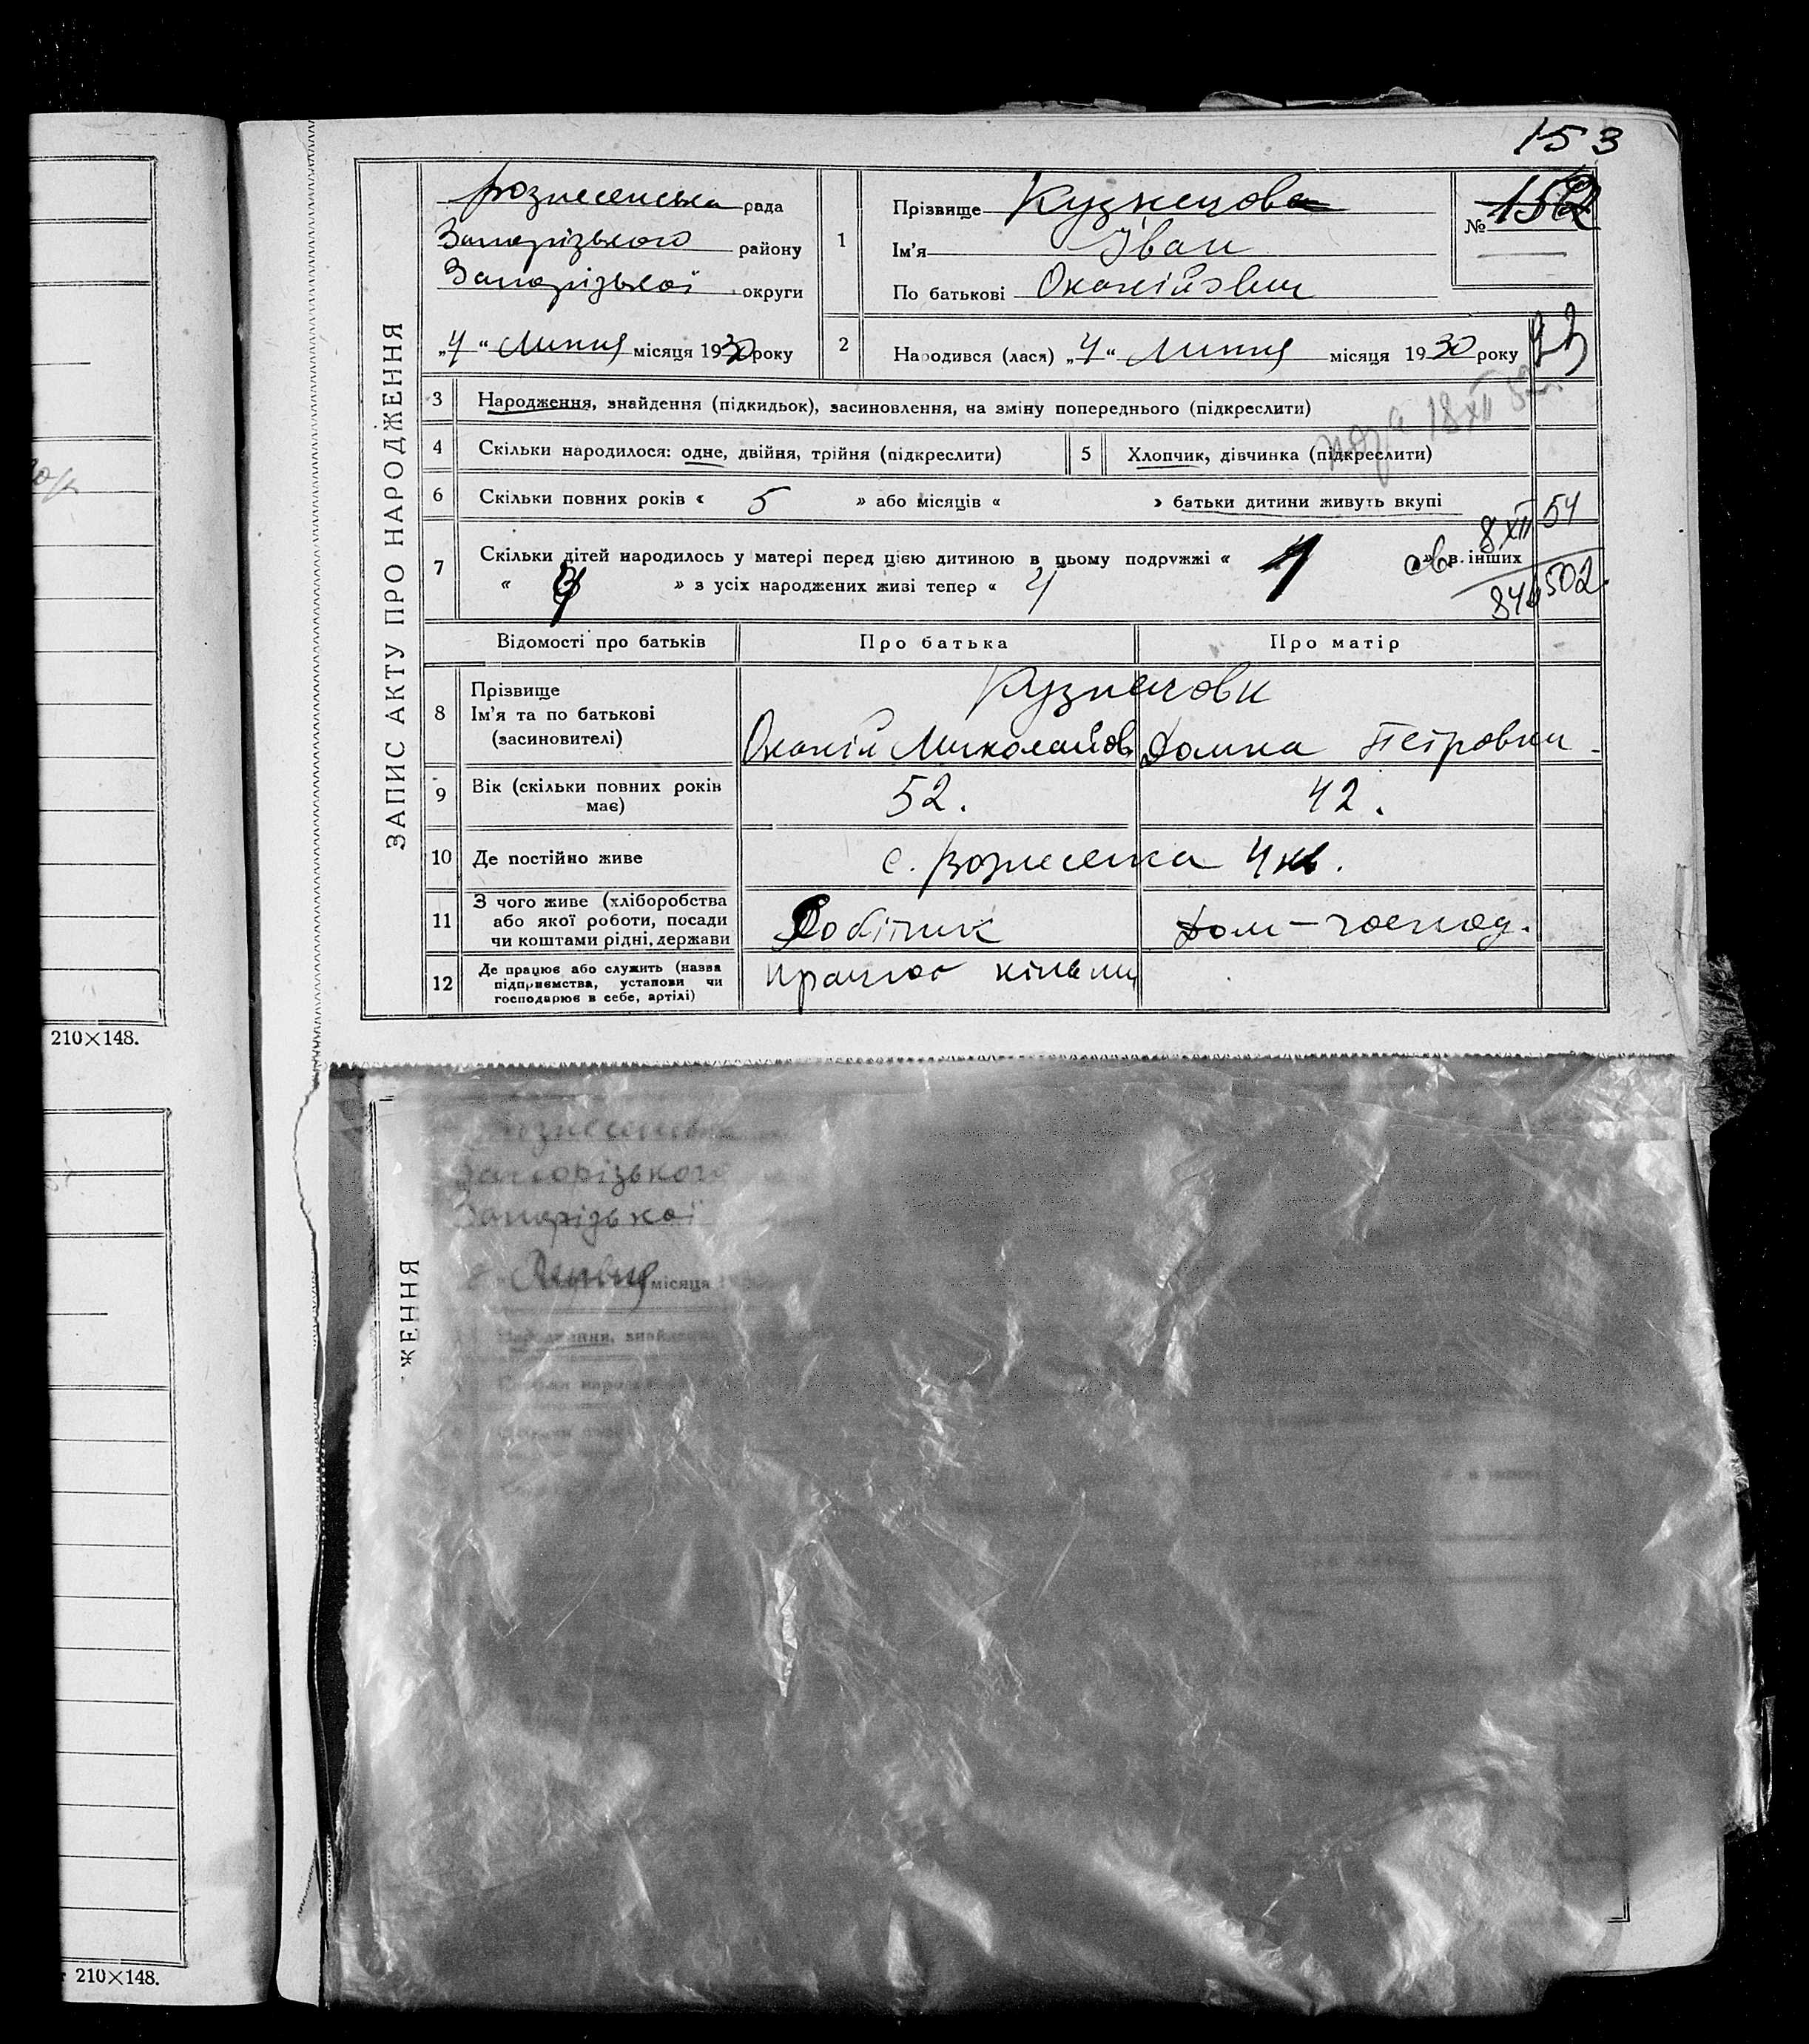 153
Вознесенська рада
Запорізького району
Запорізької округи
„4“ Липня місяця 1930 року
1
Прізвище Кузнецова
Ім'я Іван
По батькові
№ 152
2
Народився (лася) „4“ Липня місяця 1930 року
ЗАПИС АКТУ ПРО НАРОДЖЕННЯ
3 Народження, знайдення (підкидьок), засиновлення, на зміну попереднього (підкреслити)
18 XII 52
4 Скільки народилося: одне, двійня, трійня (підкреслити)
5 Хлопчик, дівчинка (підкреслити)
6 Скільки повних років « 5 » або місяців « » батьки дитини живуть вкупі
8 XII 54
7 Скільки дітей народилось у матері перед цією дитиною в цьому подружжі « » в інших
« » з усіх народжених живі тепер « 4
502
Відомості про батьків Про батька Про матір
8 Прізвище
Ім'я та по батькові
(засновителі)
Кузнецови
Миколайов Домна Петровни
9 Вік (скільки повних років має) 52. 42.
10 Де постійно живе с. Вознесенка 4 кв.
11 З чого живе (хліборобства
або якої роботи, посади
чи коштами рідні, держави
Робітник Дом-господ.
12 Де працює або служить (назва
підприємства, установи чи
господарює в себе, артілі)
працює
210×148.
Запорізького
Запорізької
місяця
ЖЕННЯ
210×148.